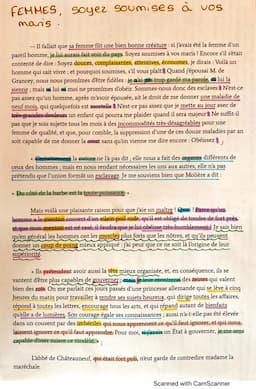 FEMMES, soyez soumises à vos
maris.
— Il fallait que sa femme fût une bien bonne créature : si j'avais été la femme d'un
pareil homme, je lui aurais fait voir du pays. Soyez soumises à vos maris ! Encore s'il s'était
contenté de dire : Soyez douces, complaisantes, attentives, économes, je dirais : Voilà un
homme qui sait vivre ; et pourquoi soumises, s'il vous plaît ? Quand j'épousai M. de
Grancey, nous nous promîmes d'être fidèles : je n'ai pas trop gardé ma parole, ni lui la
sienne ; mais ni lui ni moi ne promîmes d'obéir. Sommes-nous donc des esclaves ? N'est-ce
pas assez qu'un homme, après m'avoir épousée, ait le droit de me donner une maladie de
neuf mois, qui quelquefois est mortelle ? N'est-ce pas assez que je mette au jour avec de
très grandes douleurs un enfant qui pourra me plaider quand il sera majeur ? Ne suffit-il
pas que je sois sujette tous les mois à des incommodités très désagréables pour une
femme de qualité, et que, pour comble, la suppression d'une de ces douze maladies par an
soit capable de me donner la mort sans qu'on vienne me dire encore : Obéissez ?
« Certainement la nature ne l'a pas dit ; elle nous a fait des organes différents de
ceux des hommes ; mais en nous rendant nécessaires les uns aux autres, elle n'a pas
prétendu que l'union formât un esclavage. Je me souviens bien que Molière a dit :
« Du côté de la barbe est la toute-puissance.
Mais voilà une plaisante raison pour que j'aie un maître ! Quoi ! Parce qu'un
homme a le menton couvert d'un vilain poil rude, qu'il est obligé de tondre de fort près,
et que mon menton est né rasé, il faudra que je lui obéisse très humblement ? Je sais bien
qu'en général les hommes ont les muscles plus forts que les nôtres, et qu'ils peuvent
donner un coup de poing mieux appliqué : j'ai peur que ce ne soit là l'origine de leur
supériorité.
« Ils prétendent avoir aussi la tête mieux organisée, et, en conséquence, ils se
vantent d'être plus capables de gouverner ; mais je leur montrerai des reines qui valent
bien des rois. On me parlait ces jours passés d'une princesse allemande qui se lève à cinq
heures du matin pour travailler à rendre ses sujets heureux, qui dirige toutes les affaires,
répond à toutes les lettres, encourage tous les arts, et qui répand autant de bienfaits
qu'elle a de lumières. Son courage égale ses connaissances ; aussi n'a-t-elle pas été élevée
dans un couvent par des imbéciles qui nous apprennent ce qu'il faut ignorer, et qui nous
laissent ignorer ce qu'il faut apprendre. Pour moi, si j'avais un État à gouverner, je me sens
capable d'oser suivre ce modèle. »
L'abbé de Châteauneuf, qui était fort poli, n'eut garde de contredire madame la
maréchale.
Scanned with CamScanner